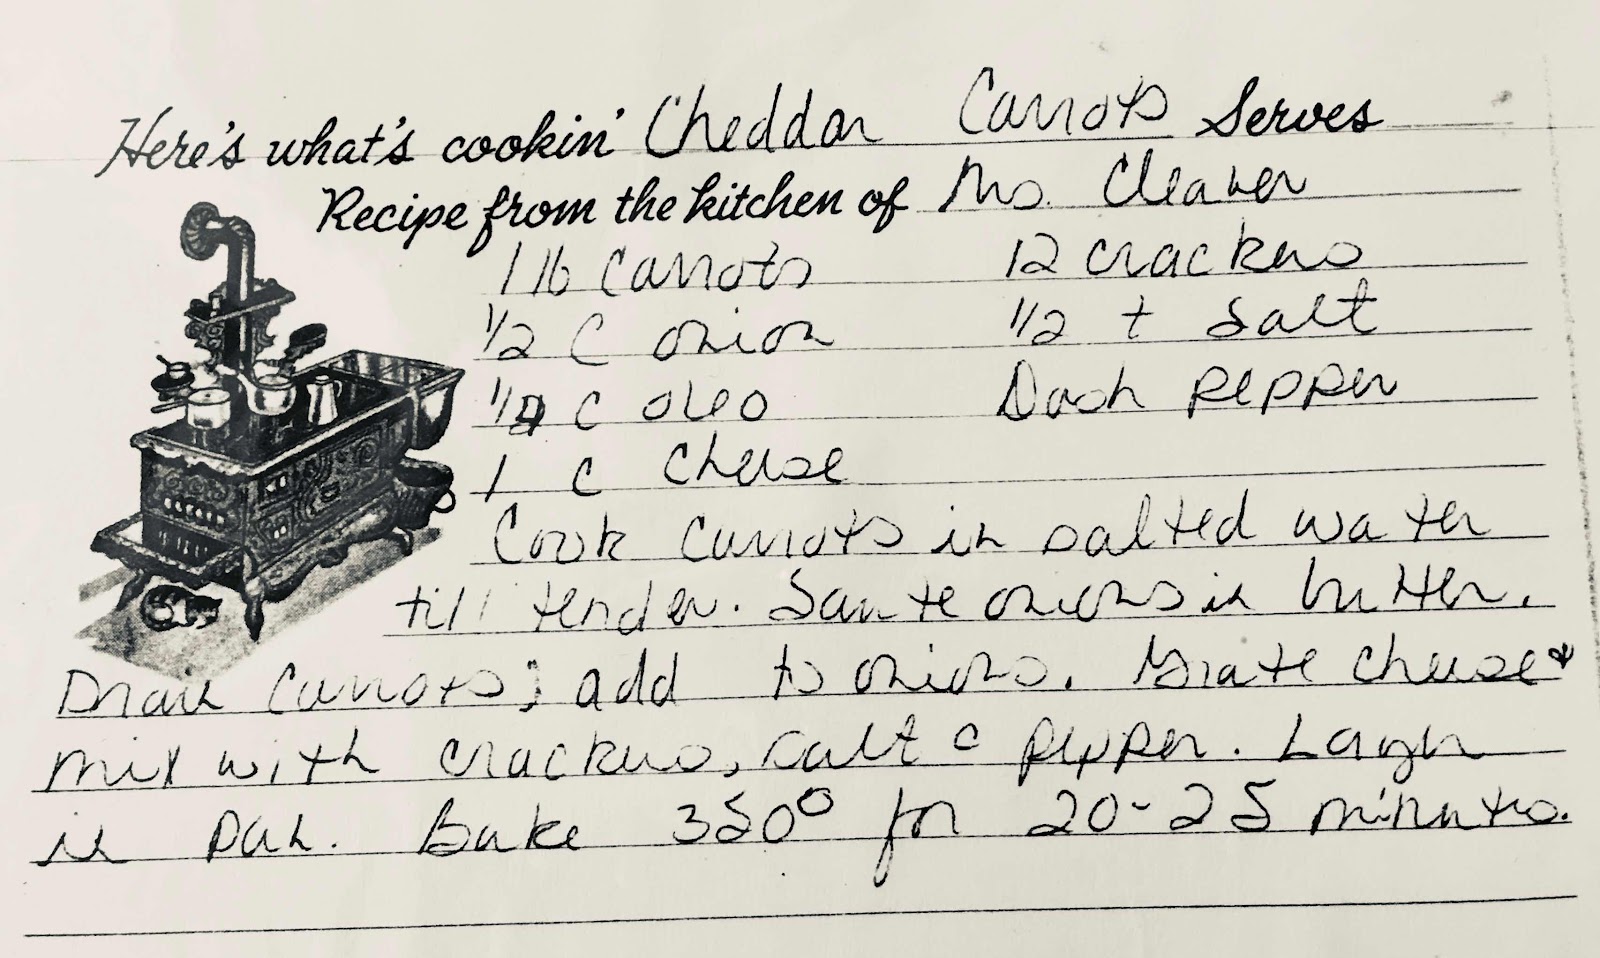 Here's what's cookin' Cheddar Carrots Serves
Recipe from the kitchen of Ms. Cleaver
1 lb Carrots 12 crackers
1/2 C onion 1/2 t Salt
1/4 C oleo Dash pepper
1 C cheese
Cook carrots in salted water
till tender. Saute onions in butter.
Drain Carrots; add to onions. Grate cheese &
mix with crackers, salt c pepper. Layer
in pan. Bake 350° for 20-25 minutes.